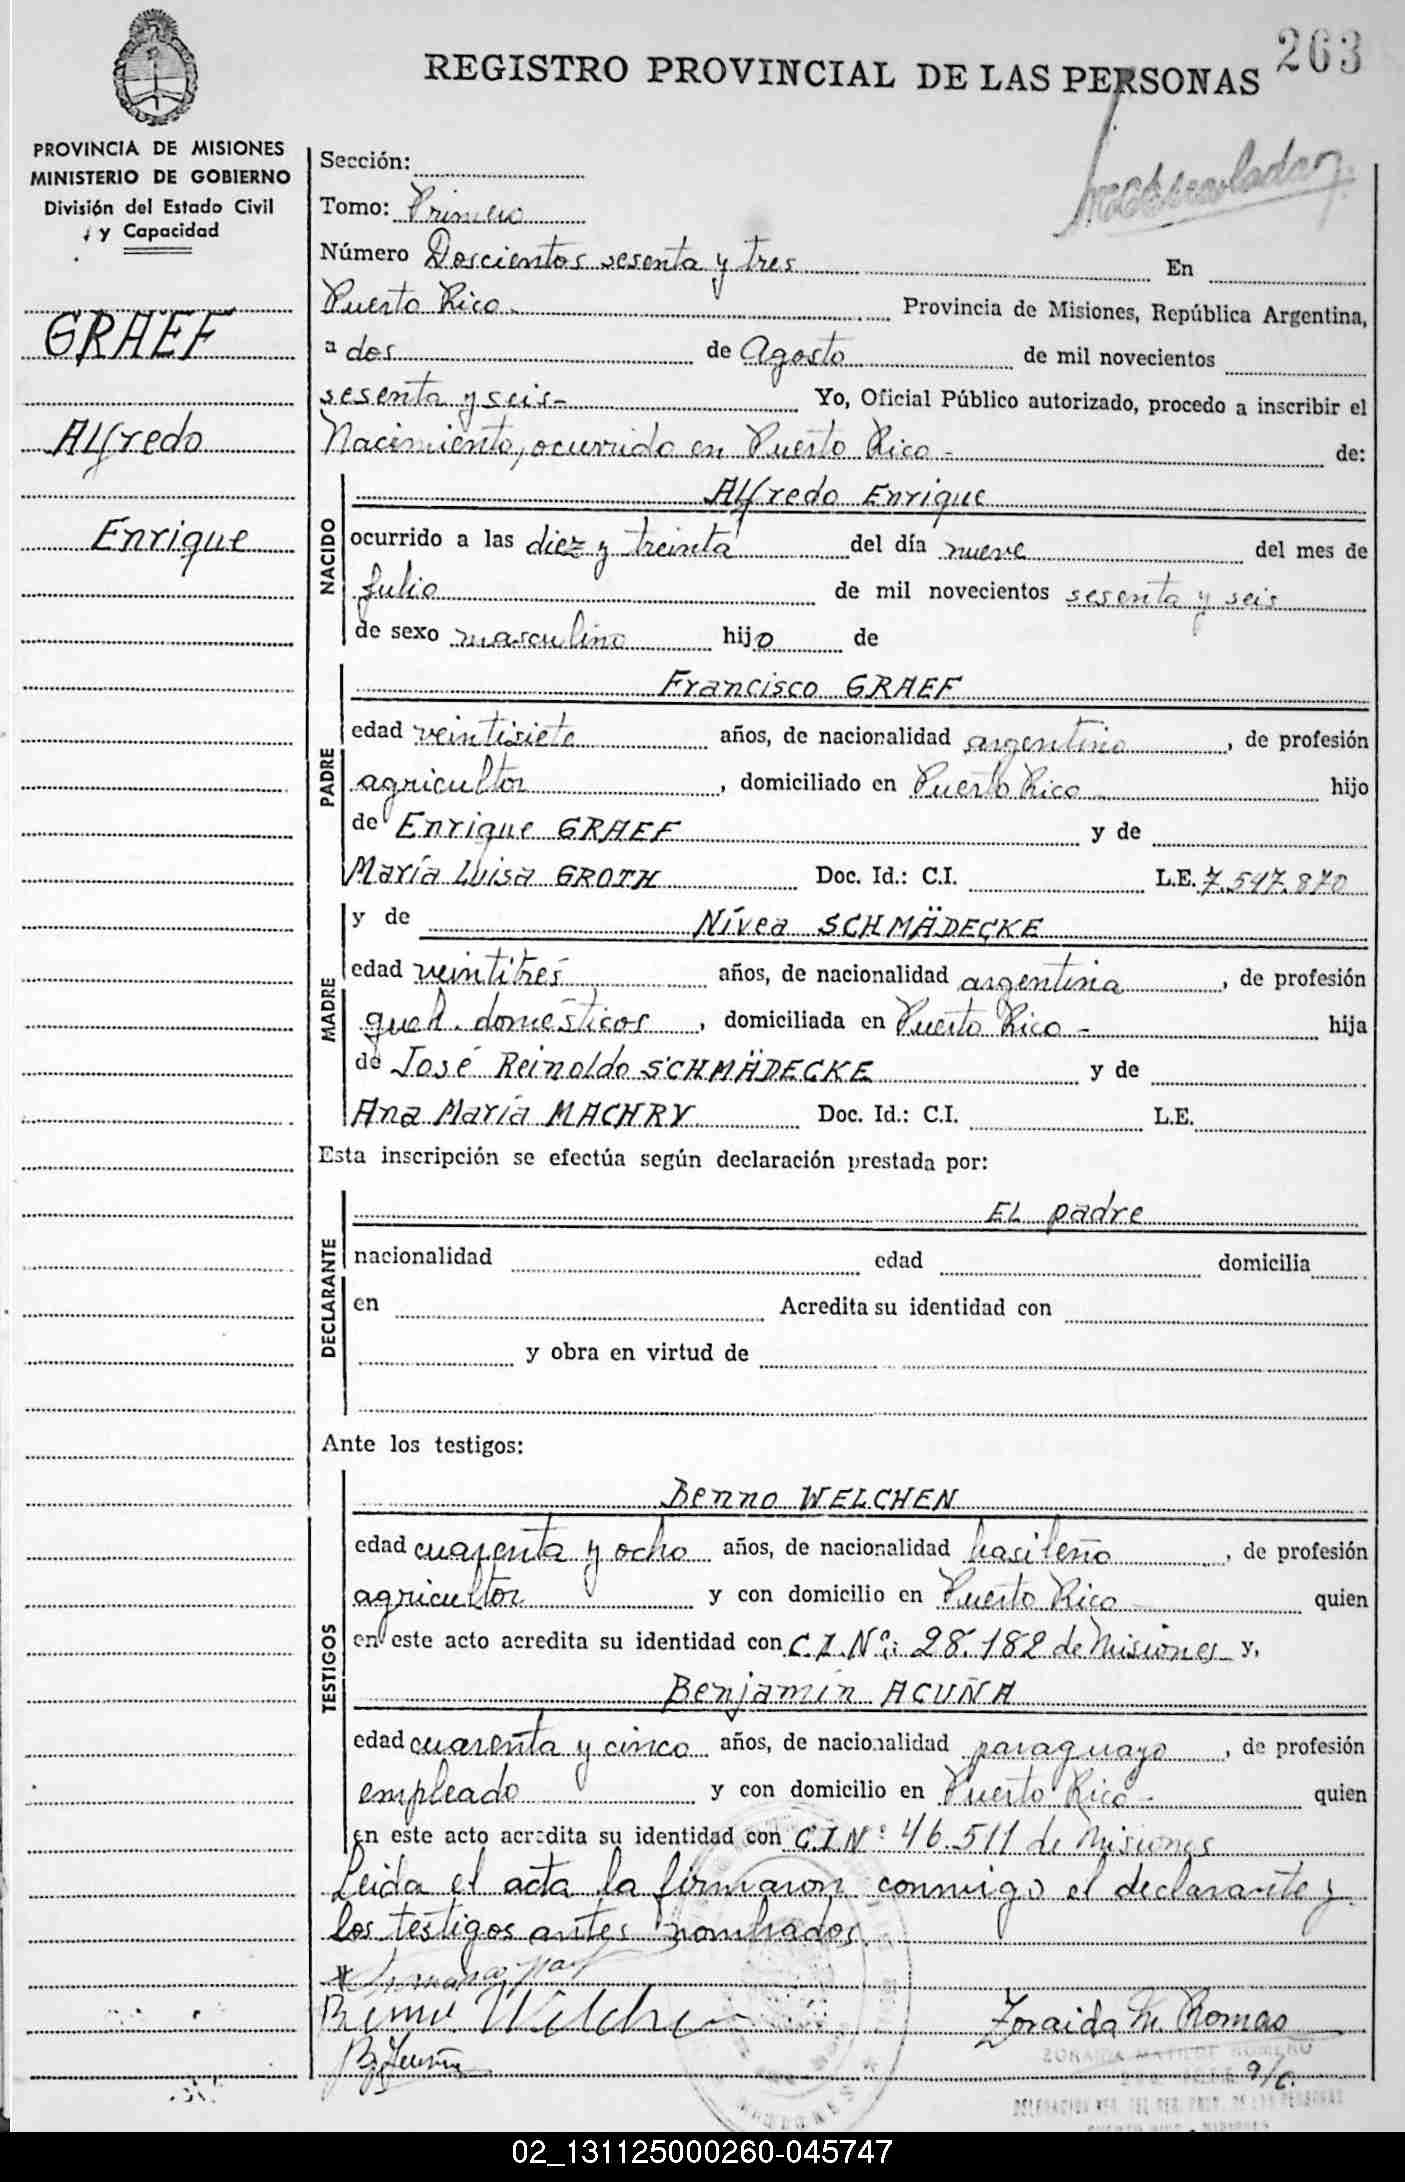 263
REGISTRO PROVINCIAL DE LAS PERSONAS
PROVINCIA DE MISIONES
MINISTERIO DE GOBIERNO
División del Estado Civil
y Capacidad
GRAEF
Alfredo
Enrique
Sección:
Tomo: Primero
Número Doscientos sesenta y tres En
Puerto Rico.- Provincia de Misiones, República Argentina,
a dos de Agosto de mil novecientos
sesenta y seis- Yo, Oficial Público autorizado, procedo a inscribir el
Nacimiento, ocurrido en Puerto Rico - de:
NACIDO
Alfredo Enrique
ocurrido a las diez y treinta del día nueve del mes de
Julio de mil novecientos sesenta y seis
de sexo masculino hijo de
PADRE
Francisco GRAEF
edad veintisiete años, de nacionalidad argentino, de profesión
agricultor, domiciliado en Puerto Rico - hijo
de Enrique GRAEF y de
María Luisa GROTH Doc. Id.: C.I. L.E. 7.547.870
MADRE
y de Nívea SCHMÄDECKE
edad veintitrés años, de nacionalidad argentina, de profesión
queh. domésticos, domiciliada en Puerto Rico - hija
de José Reinoldo SCHMÄDECKE y de
Ana María MACHRY Doc. Id.: C.I. L.E.
Esta inscripción se efectúa según declaración prestada por:
DECLARANTE
El padre
nacionalidad edad domicilia
en Acredita su identidad con
y obra en virtud de
Ante los testigos:
TESTIGOS
Benno WELCHEN
edad cuarenta y ocho años, de nacionalidad brasileño, de profesión
agricultor y con domicilio en Puerto Rico - quien
en este acto acredita su identidad con C.I.Nº: 28.182 de Misiones y,
Benjamín ACUÑA
edad cuarenta y cinco años, de nacionalidad paraguayo, de profesión
empleado y con domicilio en Puerto Rico - quien
en este acto acredita su identidad con C.I.Nº 46.511 de Misiones
Leida el acta la firmaron conmigo el declarante y
los testigos antes nombrados.
Benno Welchen
Zoraida M. Romero
ZORAIDA MATILDE ROMERO
a/c.
02_131125000260-045747